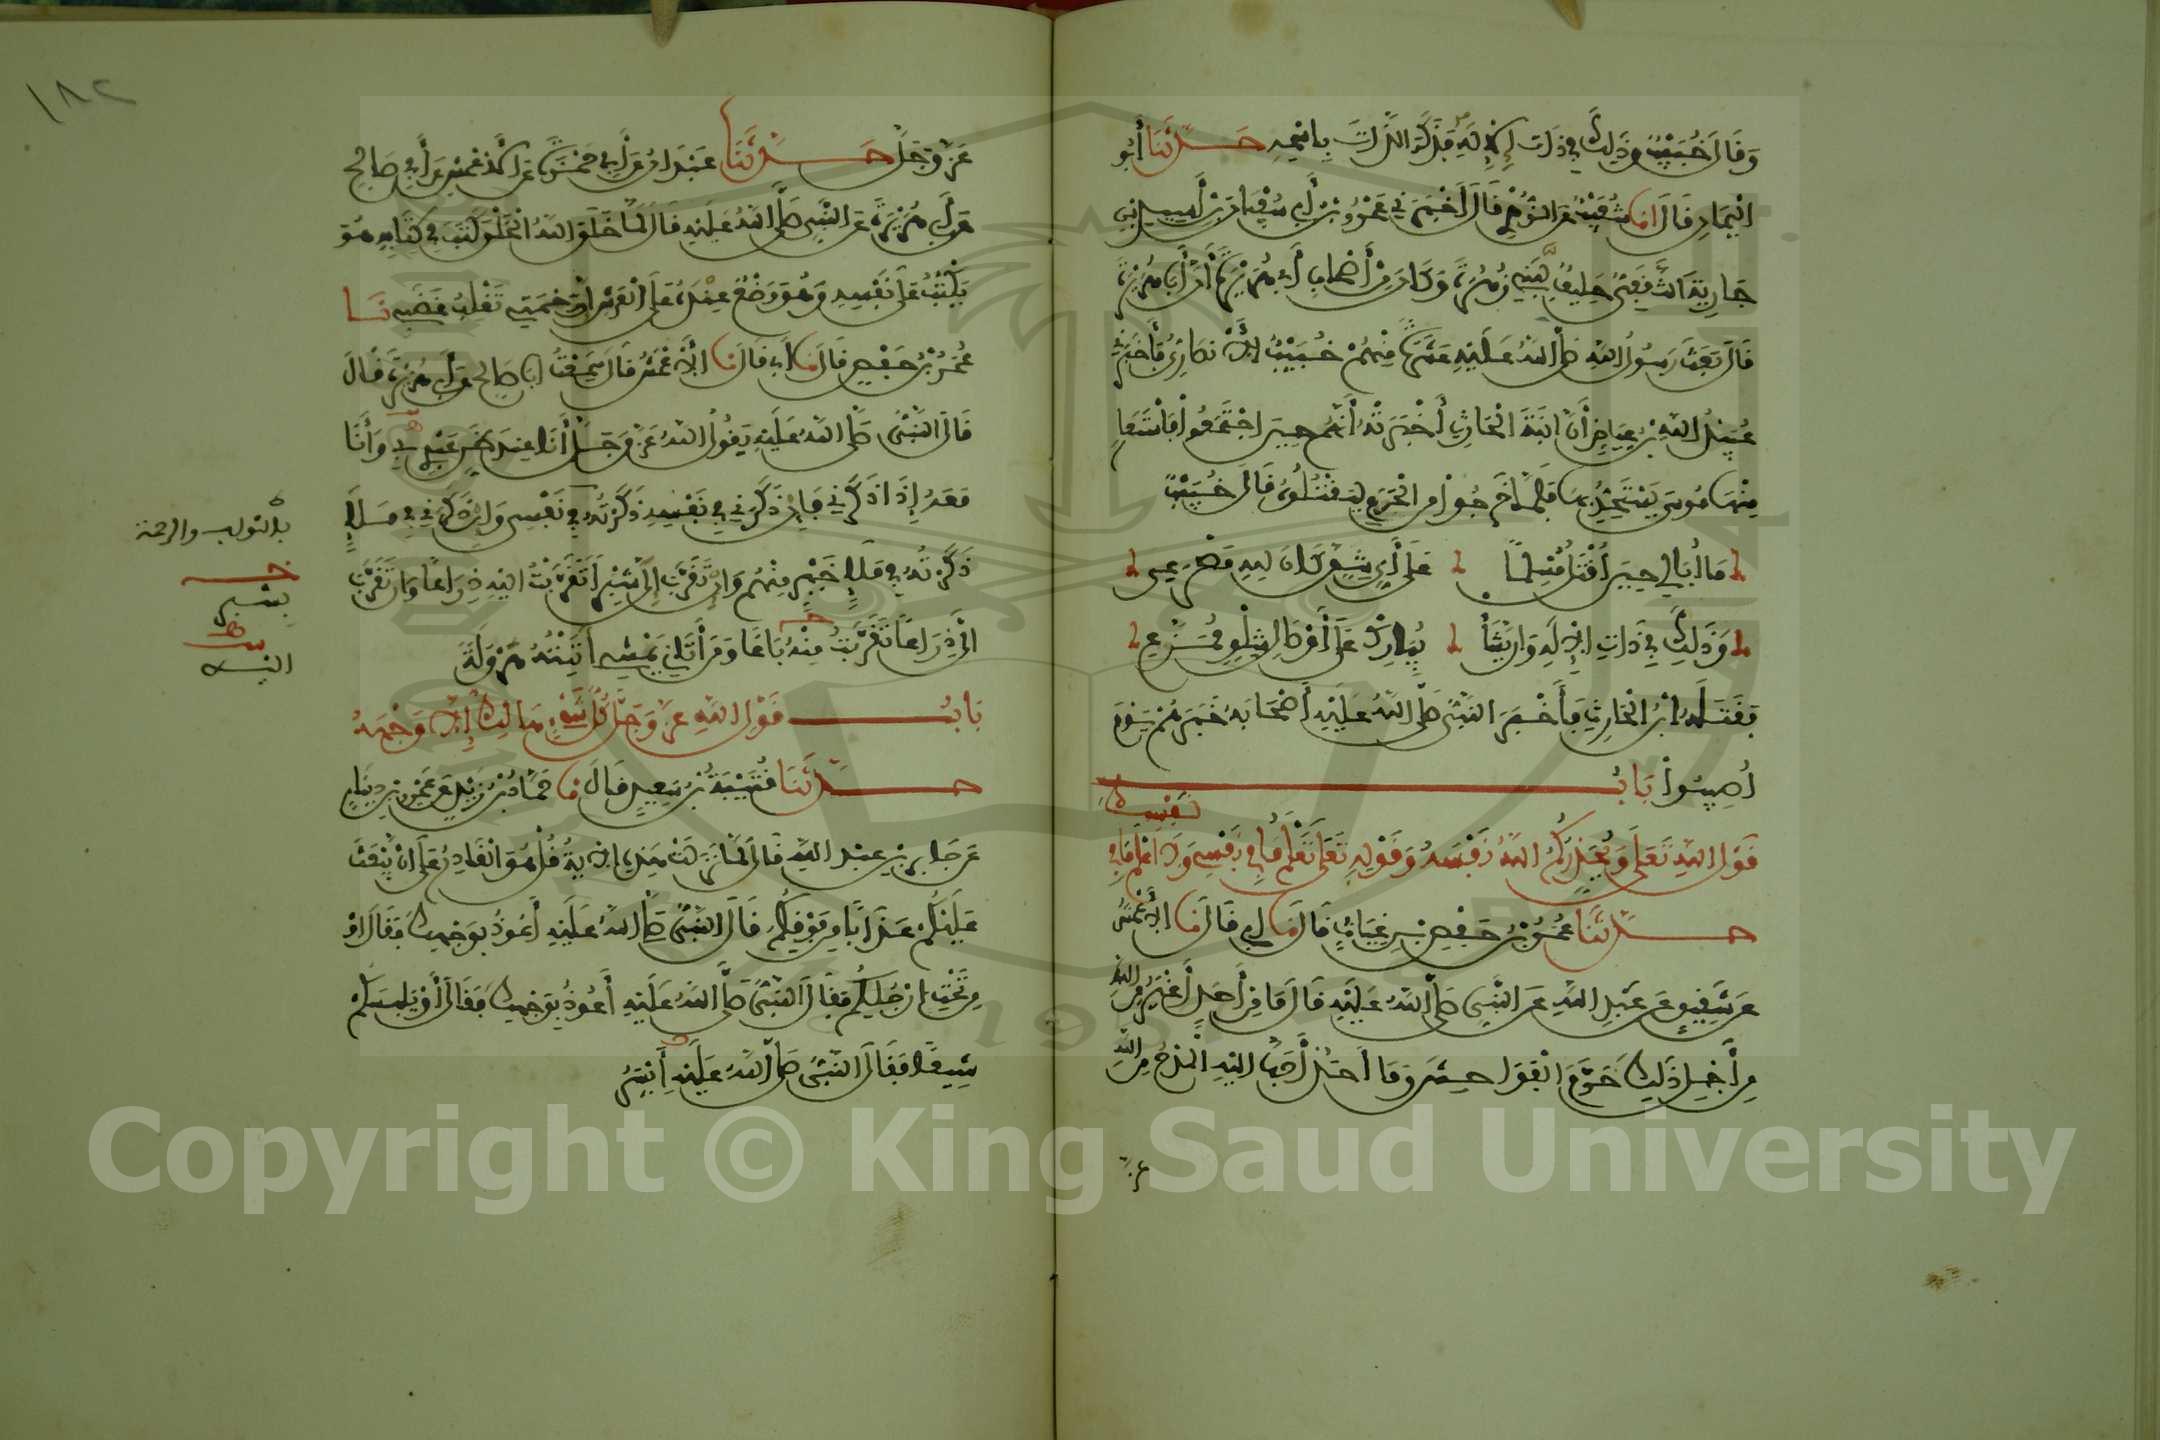 وَقَالَ خُبَيْبٌ وَذَلِكَ فِي ذَاتِ الْإِلَهِ فَذَكَرَ الذَّاتَ بِاسْمِهِ حَدَّثَنَا أَبُو
الْيَمَانِ قَالَ انا شُعَيْبٌ عَنِ الزُّهْرِيِّ قَالَ أَخْبَرَنِي عَمْرُو بْنُ أَبِي سُفْيَانَ بْنِ أَسِيدِ بْنِ
جَارِيَةَ الثَّقَفِيُّ حَلِيفٌ لِبَنِي زُهْرَةَ وَكَانَ مِنْ أَصْحَابِ أَبِي هُرَيْرَةَ أَنَّ أَبَا هُرَيْرَةَ
قَالَ بَعَثَ رَسُولُ اللهِ صَلَّى اللهُ عَلَيْهِ عَشَرَةً مِنْهُمْ خُبَيْبٌ الْأَنْصَارِيُّ فَأَخْبَرَنِي
عُبَيْدُ اللهِ بْنُ عِيَاضٍ أَنَّ ابْنَةَ الْحَارِثِ أَخْبَرَتْهُ أَنَّهُمْ حِينَ اجْتَمَعُوا اسْتَعَارَ
مِنْهَا مُوسَى يَسْتَحِدُّ بِهَا فَلَمَّا خَرَجُوا مِنَ الْحَرَمِ لِيَقْتُلُوهُ قَالَ خُبَيْبٌ
مَا أُبَالِي حِينَ أُقْتَلُ مُسْلِمًا عَلَى أَيِّ شِقٍّ كَانَ لِلهِ مَصْرَعِي
وَذَلِكَ فِي ذَاتِ الْإِلَهِ وَإِنْ يَشَأْ يُبَارِكْ عَلَى أَوْصَالِ شِلْوٍ مُمَزَّعِ
فَقَتَلَهُ ابْنُ الْحَارِثِ فَأَخْبَرَ النَّبِيُّ صَلَّى اللهُ عَلَيْهِ أَصْحَابَهُ خَبَرَهُمْ يَوْمَ
أُصِيبُوا بَابُ
قَوْلِ اللهِ تَعَالَى وَيُحَذِّرُكُمُ اللهُ نَفْسَهُ وَقَوْلِهِ تَعَالَى تَعْلَمُ مَا فِي نَفْسِي وَلَا أَعْلَمُ مَا فِي
نَفْسِكَ
حَدَّثَنَا عُمَرُ بْنُ حَفْصِ بْنِ غِيَاثٍ قَالَ نا أَبِي قَالَ نا الْأَعْمَشُ
عَنْ شَقِيقٍ عَنْ عَبْدِ اللهِ عَنِ النَّبِيِّ صَلَّى اللهُ عَلَيْهِ قَالَ مَا مِنْ أَحَدٍ أَغْيَرُ مِنَ اللهِ
مِنْ أَجْلِ ذَلِكَ حَرَّمَ الْفَوَاحِشَ وَمَا أَحَدٌ أَحَبَّ إِلَيْهِ الْمَدْحُ مِنَ اللهِ
عز
١٨٢
عَزَّ وَجَلَّ حَدَّثَنَا عَبْدَانُ عَنْ أَبِي حَمْزَةَ عَنِ الْأَعْمَشِ عَنْ أَبِي صَالِحٍ
عَنْ أَبِي هُرَيْرَةَ عَنِ النَّبِيِّ صَلَّى اللهُ عَلَيْهِ قَالَ لَمَّا خَلَقَ اللهُ الْخَلْقَ كَتَبَ فِي كِتَابِهِ هُوَ
يَكْتُبُ عَلَى نَفْسِهِ وَهُوَ وَضْعٌ عِنْدَهُ عَلَى الْعَرْشِ إِنَّ رَحْمَتِي تَغْلِبُ غَضَبِي نا
عُمَرُ بْنُ حَفْصٍ قَالَ نا أَبِي قَالَ نا الْأَعْمَشُ قَالَ سَمِعْتُ أَبَا صَالِحٍ عَنْ أَبِي هُرَيْرَةَ قَالَ
قَالَ النَّبِيُّ صَلَّى اللهُ عَلَيْهِ يَقُولُ اللهُ عَزَّ وَجَلَّ أَنَا عِنْدَ ظَنِّ عَبْدِي بِي وَأَنَا
مَعَهُ إِذَا ذَكَرَنِي فَإِنْ ذَكَرَنِي فِي نَفْسِهِ ذَكَرْتُهُ فِي نَفْسِي وَإِنْ ذَكَرَنِي فِي مَلَإٍ
ذَكَرْتُهُ فِي مَلَإٍ خَيْرٍ مِنْهُمْ وَإِنْ تَقَرَّبَ إِلَيَّ شِبْرًا تَقَرَّبْتُ إِلَيْهِ ذِرَاعًا وَإِنْ تَقَرَّبَ
إِلَيَّ ذِرَاعًا تَقَرَّبْتُ مِنْهُ بَاعًا وَمَنْ أَتَانِي يَمْشِي أَتَيْتُهُ هَرْوَلَةً
بَابُ قَوْلِ اللهِ عَزَّ وَجَلَّ كُلُّ شَيْءٍ هَالِكٌ إِلَّا وَجْهَهُ
حَدَّثَنَا قُتَيْبَةُ بْنُ سَعِيدٍ قَالَ نا حَمَّادُ بْنُ زَيْدٍ عَنْ عَمْرِو بْنِ دِينَارٍ
عَنْ جَابِرِ بْنِ عَبْدِ اللهِ قَالَ لَمَّا نَزَلَتْ هَذِهِ الْآيَةُ قُلْ هُوَ الْقَادِرُ عَلَى أَنْ يَبْعَثَ
عَلَيْكُمْ عَذَابًا مِنْ فَوْقِكُمْ قَالَ النَّبِيُّ صَلَّى اللهُ عَلَيْهِ أَعُوذُ بِوَجْهِكَ فَقَالَ أَوْ
مِنْ تَحْتِ أَرْجُلِكُمْ فَقَالَ النَّبِيُّ صَلَّى اللهُ عَلَيْهِ أَعُوذُ بِوَجْهِكَ فَقَالَ أَوْ يَلْبِسَكُمْ
شِيَعًا فَقَالَ النَّبِيُّ صَلَّى اللهُ عَلَيْهِ أَيْسَرُ
والرحمة
بشبر
Copyright © King Saud University
1957